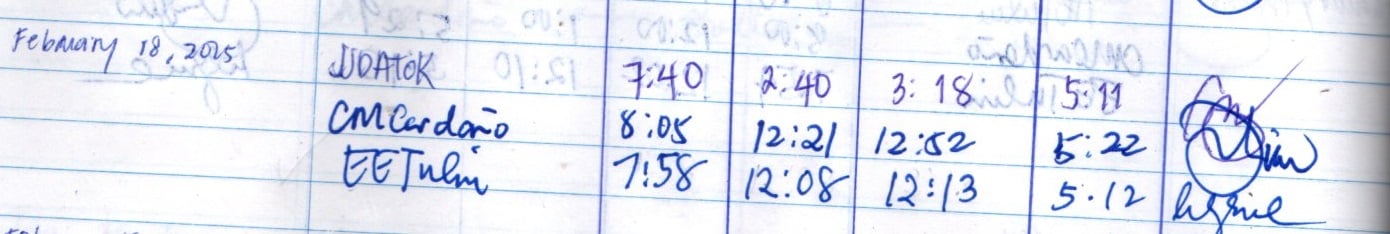 February 18, 2025 JJDATOK 7:40 2:40 3:18 5:11
CMCardaño 8:05 12:21 12:52 5:22
EETulin 7:58 12:08 12:13 5.12